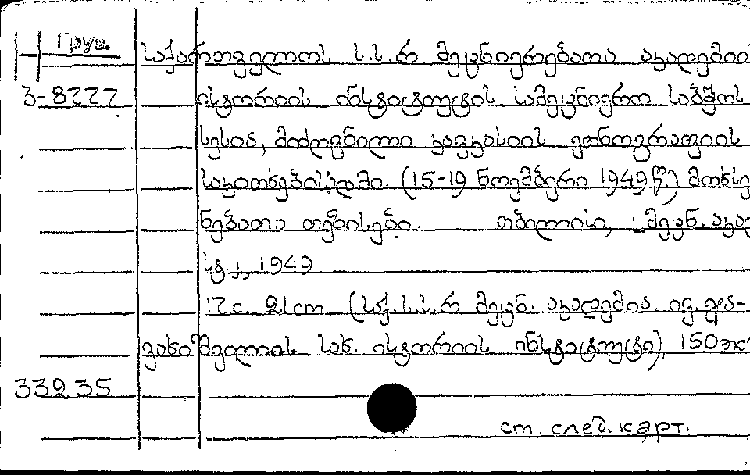 Груз.
საქართველოს ს.ს.რ მეცნიერებათა აკადემიი
3-8222 ისტორიის ინსტიტუტის სამეცნიერო საბჭოს
სესია, მიძღვნილი კავკასიის ეთნოგრაფიის
საკითხებისადმი. (15-19 ნოემბერი 1949 წ) მოხსე
ნებათა თეზისები. თბილისი, მეცნ. აკად
სტ., 1949
12 с. 21 cm (საქ. ს.ს.რ მეცნ. აკადემია. ივ. ჯა-
ვახიშვილის სახ. ისტორიის ინსტიტუტი), 150 эк
33235
ст. след. карт.